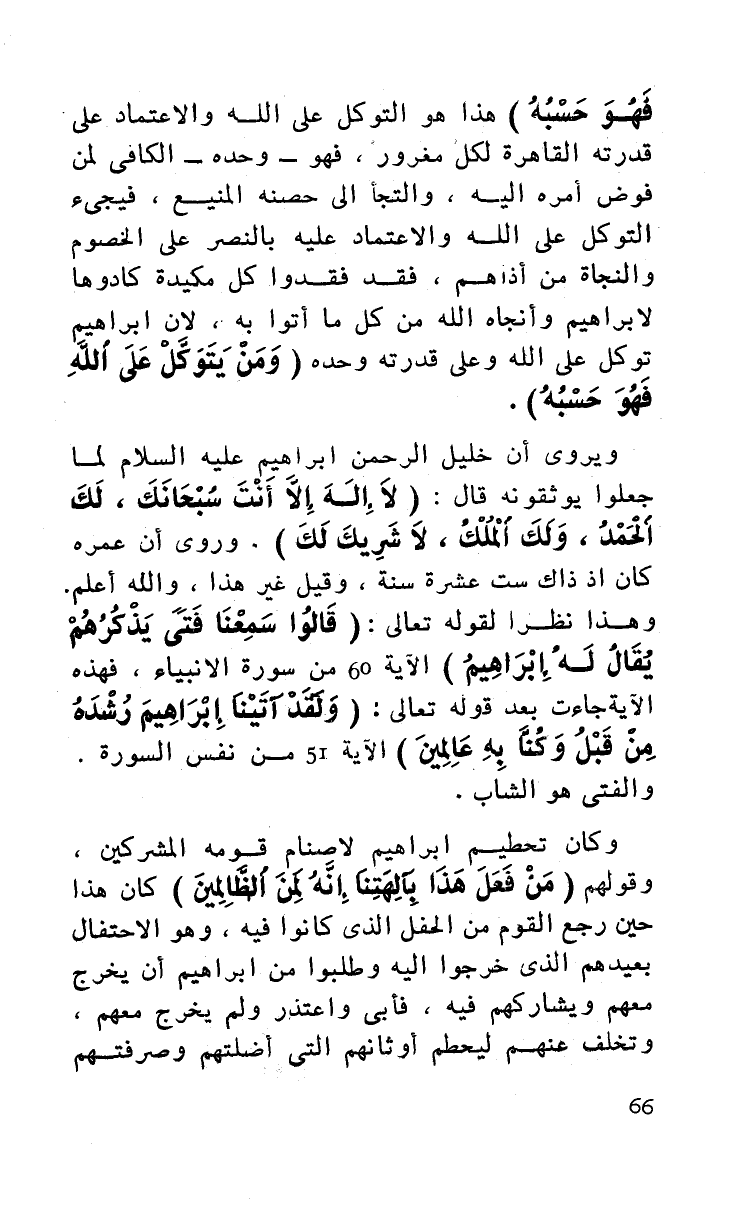 فَهُـوَ حَسْبُهُ ) هذا هو التوكل على اللـه والاعتماد على
قدرته القاهرة لكل مغرور ، فهو ــ وحده ــ الكافى لمن
فوض أمره اليـه ، والتجأ الى حصنه المنيـع ، فيجىء
التوكل على اللـه والاعتماد عليه بالنصر على الخصوم
والنجاة من أذاهـم ، فقـد فقـدوا كل مكيدة كادوها
لابراهيم وأنجاه الله من كل ما أتوا به ، لان ابراهيم
توكل على الله وعلى قدرته وحده ( وَمَنْ يَتَوَكَّلْ عَلَى ٱللَّهِ
فَهُوَ حَسْبُهُ ) .
ويروى أن خليل الرحمن ابراهيم عليه السلام لمـا
جعلوا يوثقونه قال : ( لاَ إِلـهَ إِلاَّ أَنْتَ سُبْحَانَكَ ، لَكَ
ٱلْحَمْدُ ، وَلَكَ ٱلْمُلْكُ ، لاَ شَرِيكَ لَكَ ) . وروى أن عمره
كان اذ ذاك ست عشرة سنة ، وقيل غير هذا ، والله أعلم.
وهـذا نظـرا لقوله تعالى : ( قَالُوا سَمِعْنَا فَتًى يَذْكُرُهُمْ
يُقَالُ لَـهُ إِبْرَاهِيمُ ) الآية 60 من سورة الانبياء ، فهذه
الآية جاءت بعد قوله تعالى : ( وَلَقَدْ آتَيْنَا إِبْرَاهِيمَ رُشْدَهُ
مِنْ قَبْلُ وَكُنَّا بِهِ عَالِمِينَ ) الآية 51 مـن نفس السورة .
والفتى هو الشاب .
وكان تحطيـم ابراهيم لاصنام قـومه المشركين ،
وقولهم ( مَنْ فَعَلَ هَذَا بِآلِهَتِنَا إِنَّهُ لَمِنَ ٱلظَّالِمِينَ ) كان هذا
حين رجع القوم من الحفل الذى كانوا فيه ، وهو الاحتفال
بعيدهم الذى خرجوا اليه وطلبوا من ابراهيم أن يخرج
معهم ويشاركهم فيه ، فأبى واعتذر ولم يخرج معهم ،
وتخلف عنهـم ليحطم أوثانهم التى أضلتهم وصرفتـهم
66